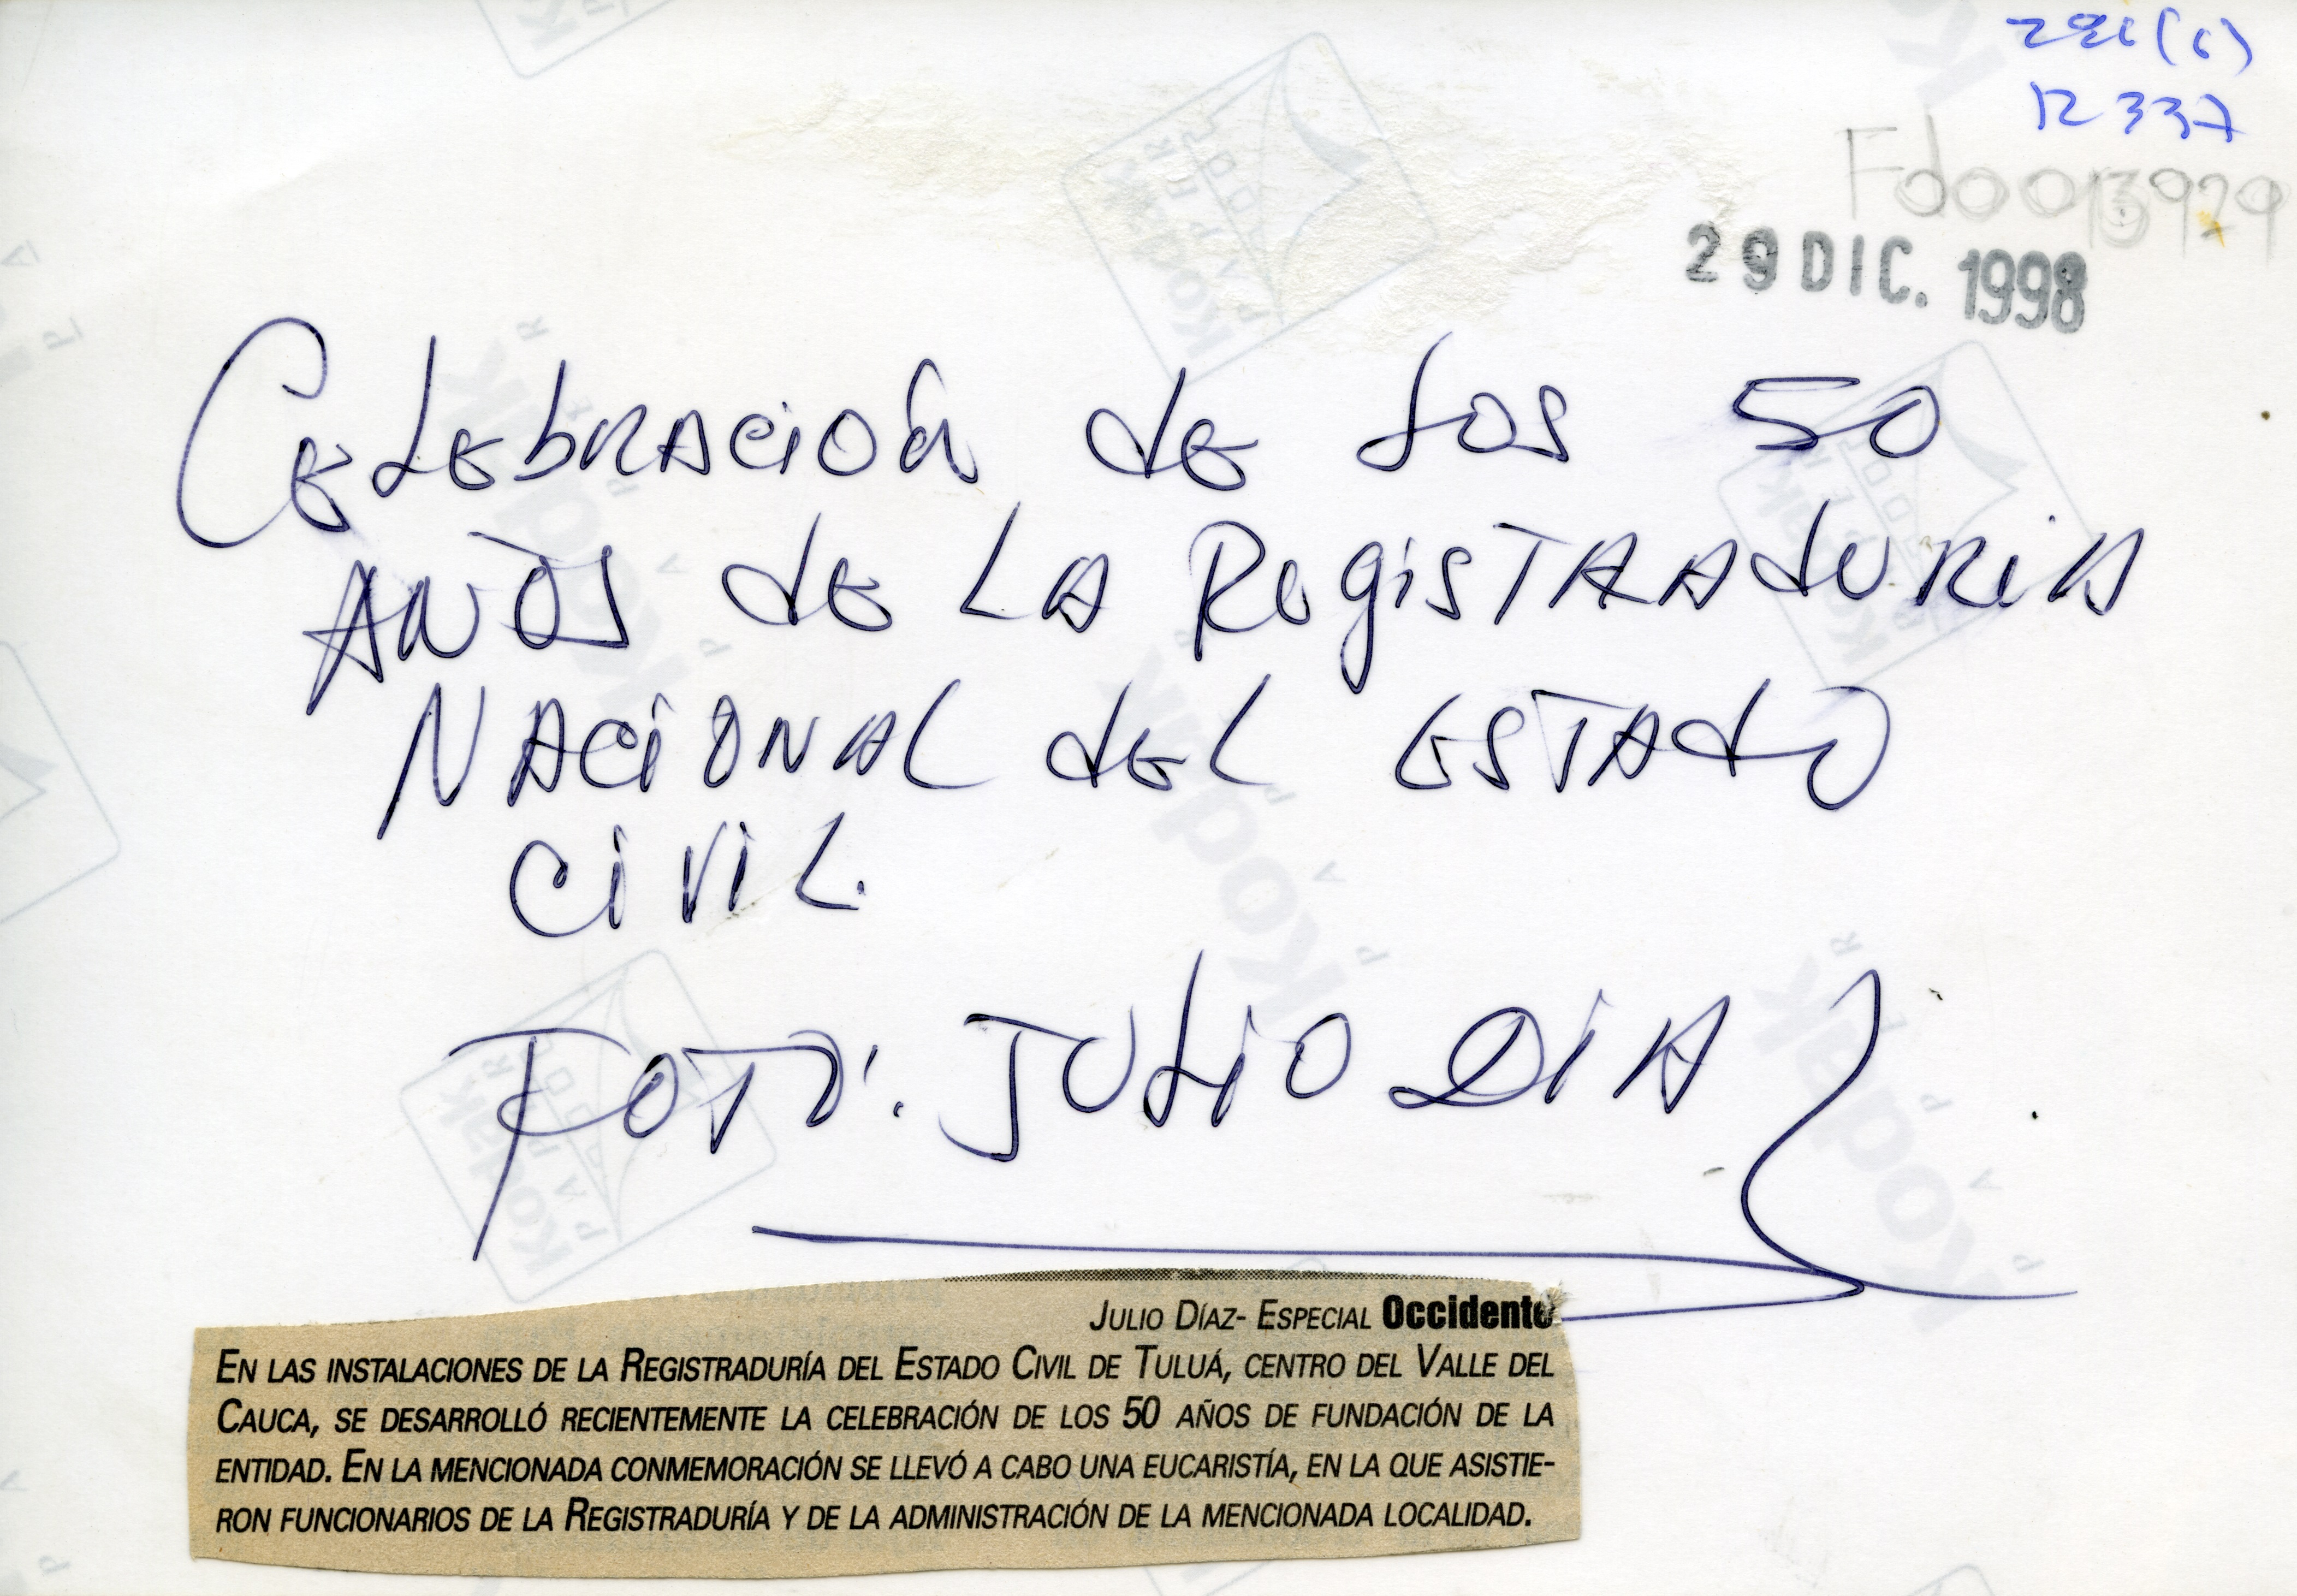 R 337
Fdo013929
29 DIC. 1998
Celebración de los 50
años de la Registraduria
Nacional del Estado
Civil.
Foto: Julio Diaz
JULIO DÍAZ- ESPECIAL Occidente
EN LAS INSTALACIONES DE LA REGISTRADURÍA DEL ESTADO CIVIL DE TULUÁ, CENTRO DEL VALLE DEL
CAUCA, SE DESARROLLÓ RECIENTEMENTE LA CELEBRACIÓN DE LOS 50 AÑOS DE FUNDACIÓN DE LA
ENTIDAD. EN LA MENCIONADA CONMEMORACIÓN SE LLEVÓ A CABO UNA EUCARISTÍA, EN LA QUE ASISTIE-
RON FUNCIONARIOS DE LA REGISTRADURÍA Y DE LA ADMINISTRACIÓN DE LA MENCIONADA LOCALIDAD.